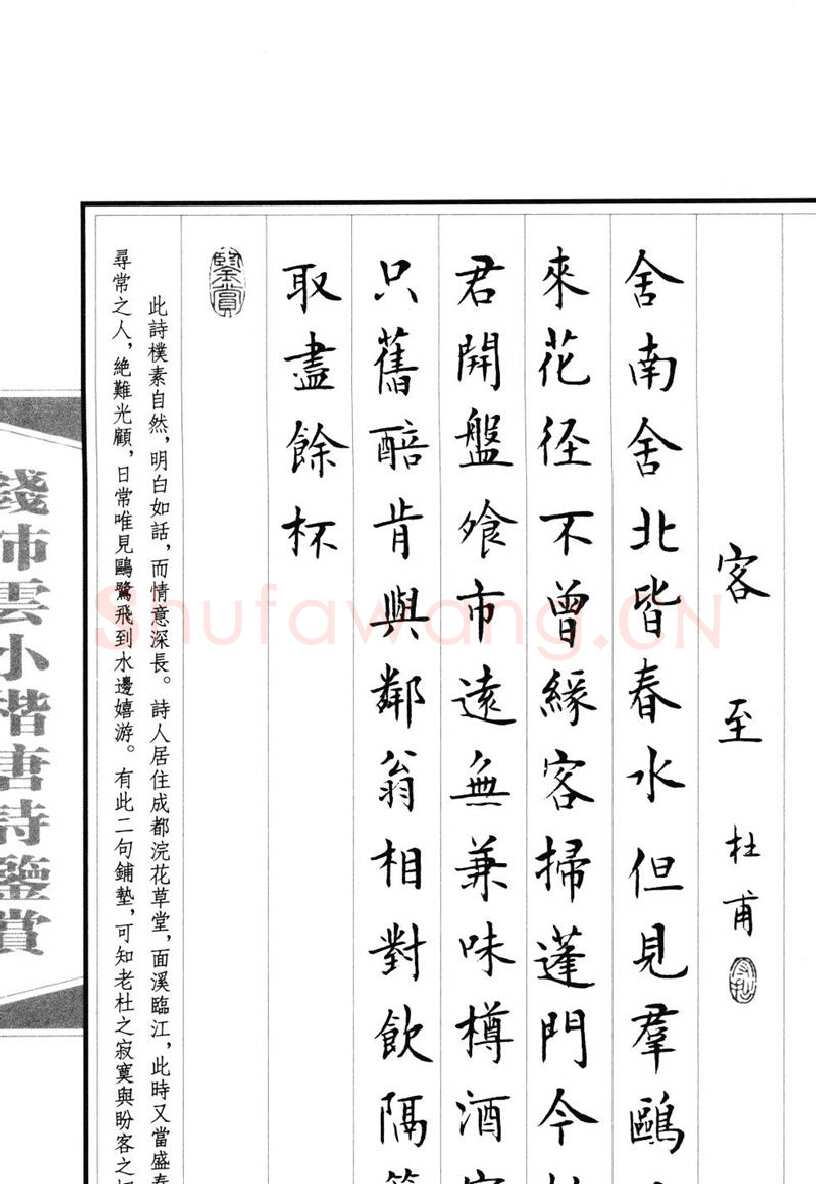 客至 杜甫
舍南舍北皆春水但見羣鷗
來花徑不曾緣客掃蓬門今
君開盤飧市遠無兼味樽酒
只舊醅肯與鄰翁相對飲隔
取盡餘杯
鑒賞
此詩樸素自然，明白如話，而情意深長。詩人居住成都浣花草堂，面溪臨江，此時又當盛春
尋常之人，絶難光顧，日常唯見鷗鷺飛到水邊嬉游。有此二句鋪墊，可知老杜之寂寞與盼客之
錢沛雲小楷唐詩鑒賞
Shufawang.CN